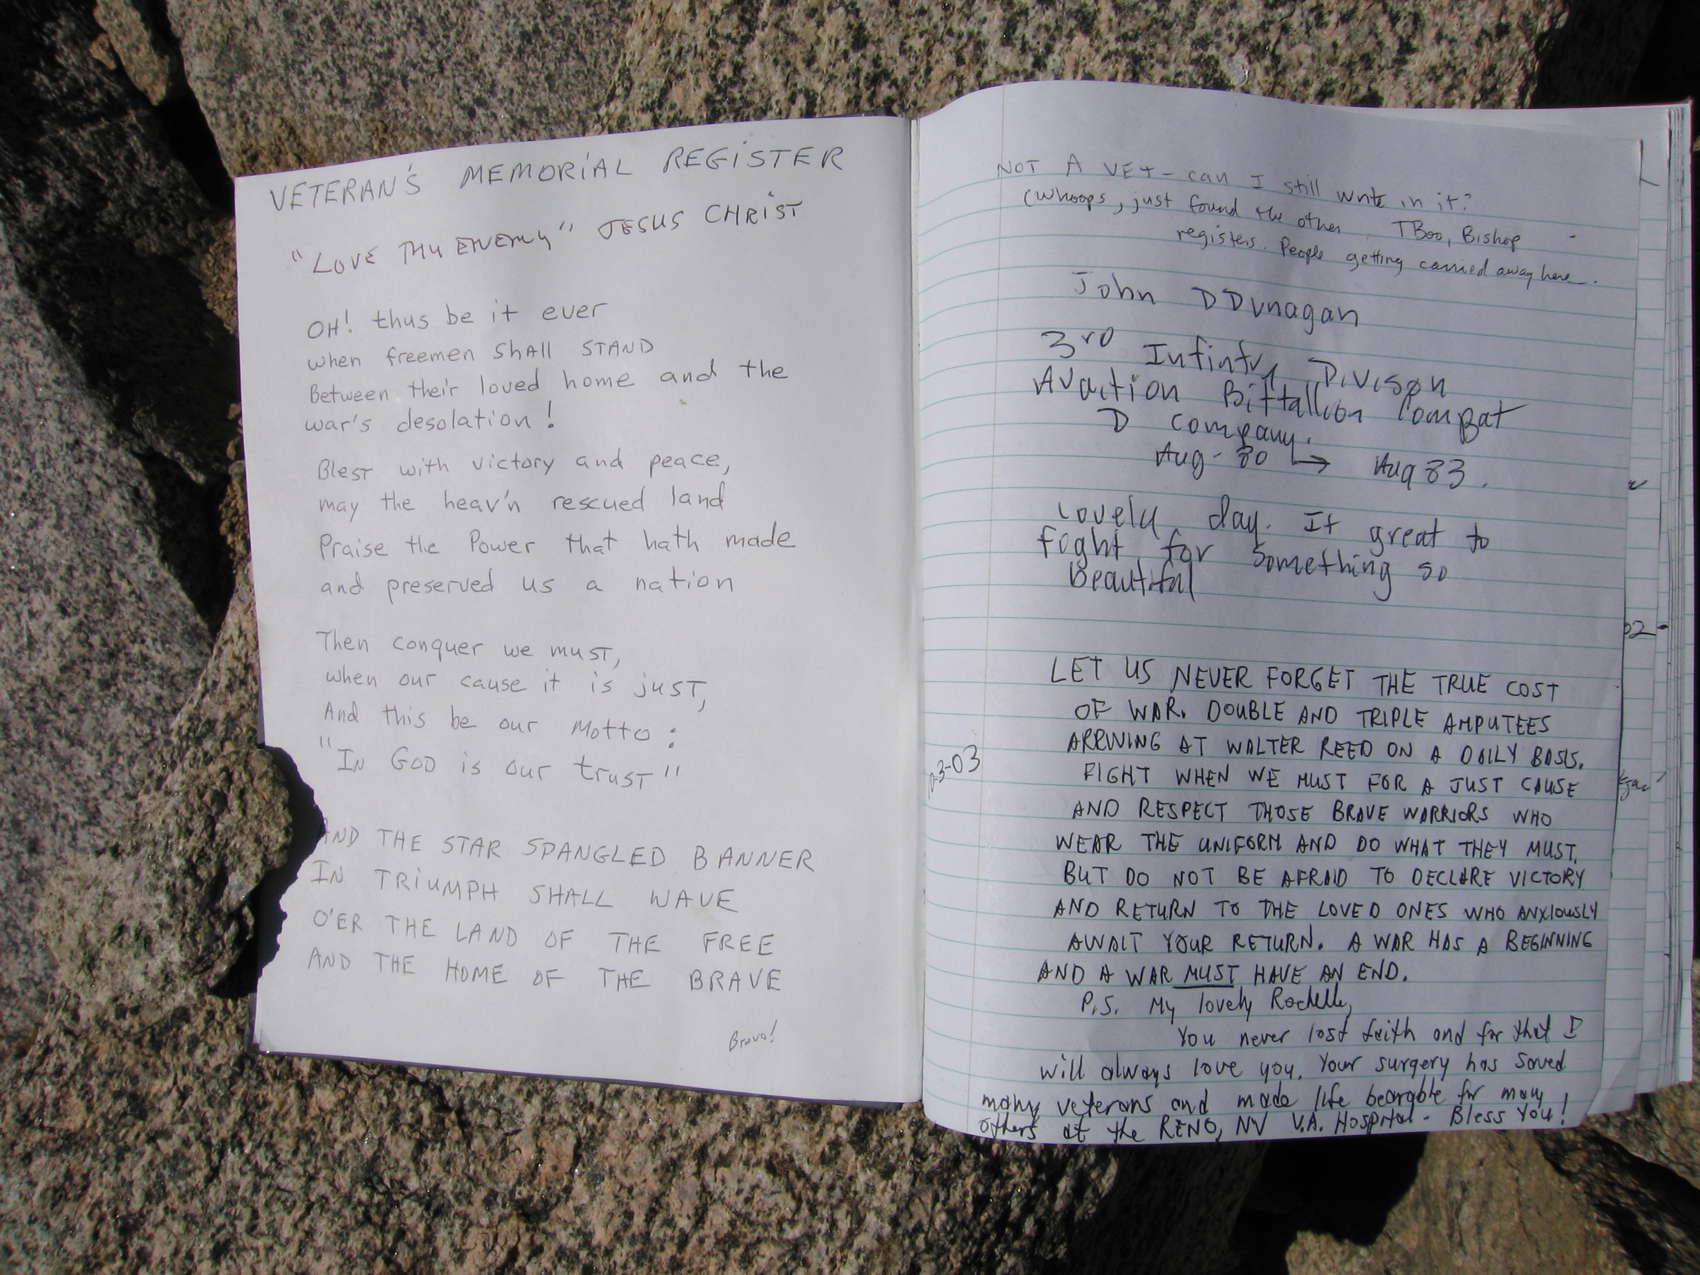 VETERAN'S MEMORIAL REGISTER
"LOVE THY ENEMY" JESUS CHRIST
OH! thus be it ever
when freemen shall STAND
Between their loved home and the
war's desolation!
Blest with victory and peace,
may the heav'n rescued land
Praise the Power that hath made
and preserved us a nation
Then conquer we must,
when our cause it is just,
And this be our Motto:
"In GOD is our trust"
AND THE STAR SPANGLED BANNER
IN TRIUMPH SHALL WAVE
O'ER THE LAND OF THE FREE
AND THE HOME OF THE BRAVE
Bravo!
NOT A VET - can I still write in it?
(Whoops, just found the other TBoo, Bishop
registers. People getting carried away here.
John D Dunagan
3rd Infintry Divison
Avaition Bittallion Combat
D Company.
Aug-80 → Aug 83.
Lovely day. It great to
fight for something so
beautiful
LET US NEVER FORGET THE TRUE COST
OF WAR. DOUBLE AND TRIPLE AMPUTEES
ARRIVING AT WALTER REED ON A DAILY BASIS.
FIGHT WHEN WE MUST FOR A JUST CAUSE
AND RESPECT THOSE BRAVE WARRIORS WHO
WEAR THE UNIFORM AND DO WHAT THEY MUST.
BUT DO NOT BE AFRAID TO DECLARE VICTORY
AND RETURN TO THE LOVED ONES WHO ANXIOUSLY
AWAIT YOUR RETURN. A WAR HAS A BEGINNING
AND A WAR MUST HAVE AN END.
P.S. My lovely Rochelle,
You never lost faith and for that I
will always love you. Your surgery has saved
many veterans and made life bearable for many
others at the RENO, NV V.A. Hospital - Bless You!
-3-03
02-